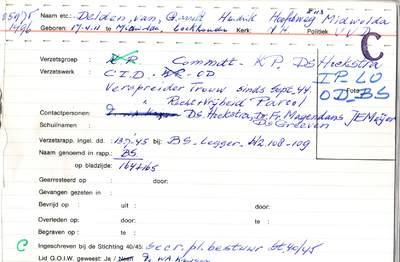 Naam etc.: Delden, van, Gerrit Hendrik Hoofdweg Midwolda
Geboren: 17-4.11 te Midwolda, Kerk: N.H. Politiek
C
Verzetsgroep : Commdt. K.P. Ds Hoekstra
Verzetswerk : C.I.D. OD
IP-LO
Foto
OD-BS
Verspreider Trouw sinds Sept. 44.
" Recht Vrijheid Parool
Contactpersonen: Ds. Hoekstra, Dr. F. Magendans, J E Meijer
Schuilnaam : Ds Greeven
Verzetsrapp. ingel. d.d. 13.7.45 bij: BS-Legger-W2.108-109
Naam genoemd in rapp.: BS
op bladzijde: 164+165
Gearresteerd op : door:
Gevangen gezeten in :
Bevrijd op : uit : door:
Overleden op: door: te :
Begraven op : te :
C Ingeschreven bij de Stichting 40/45: Secr. pl. bestuur St. 40/45
Lid G.O.I.W. geweest: Ja / Neen